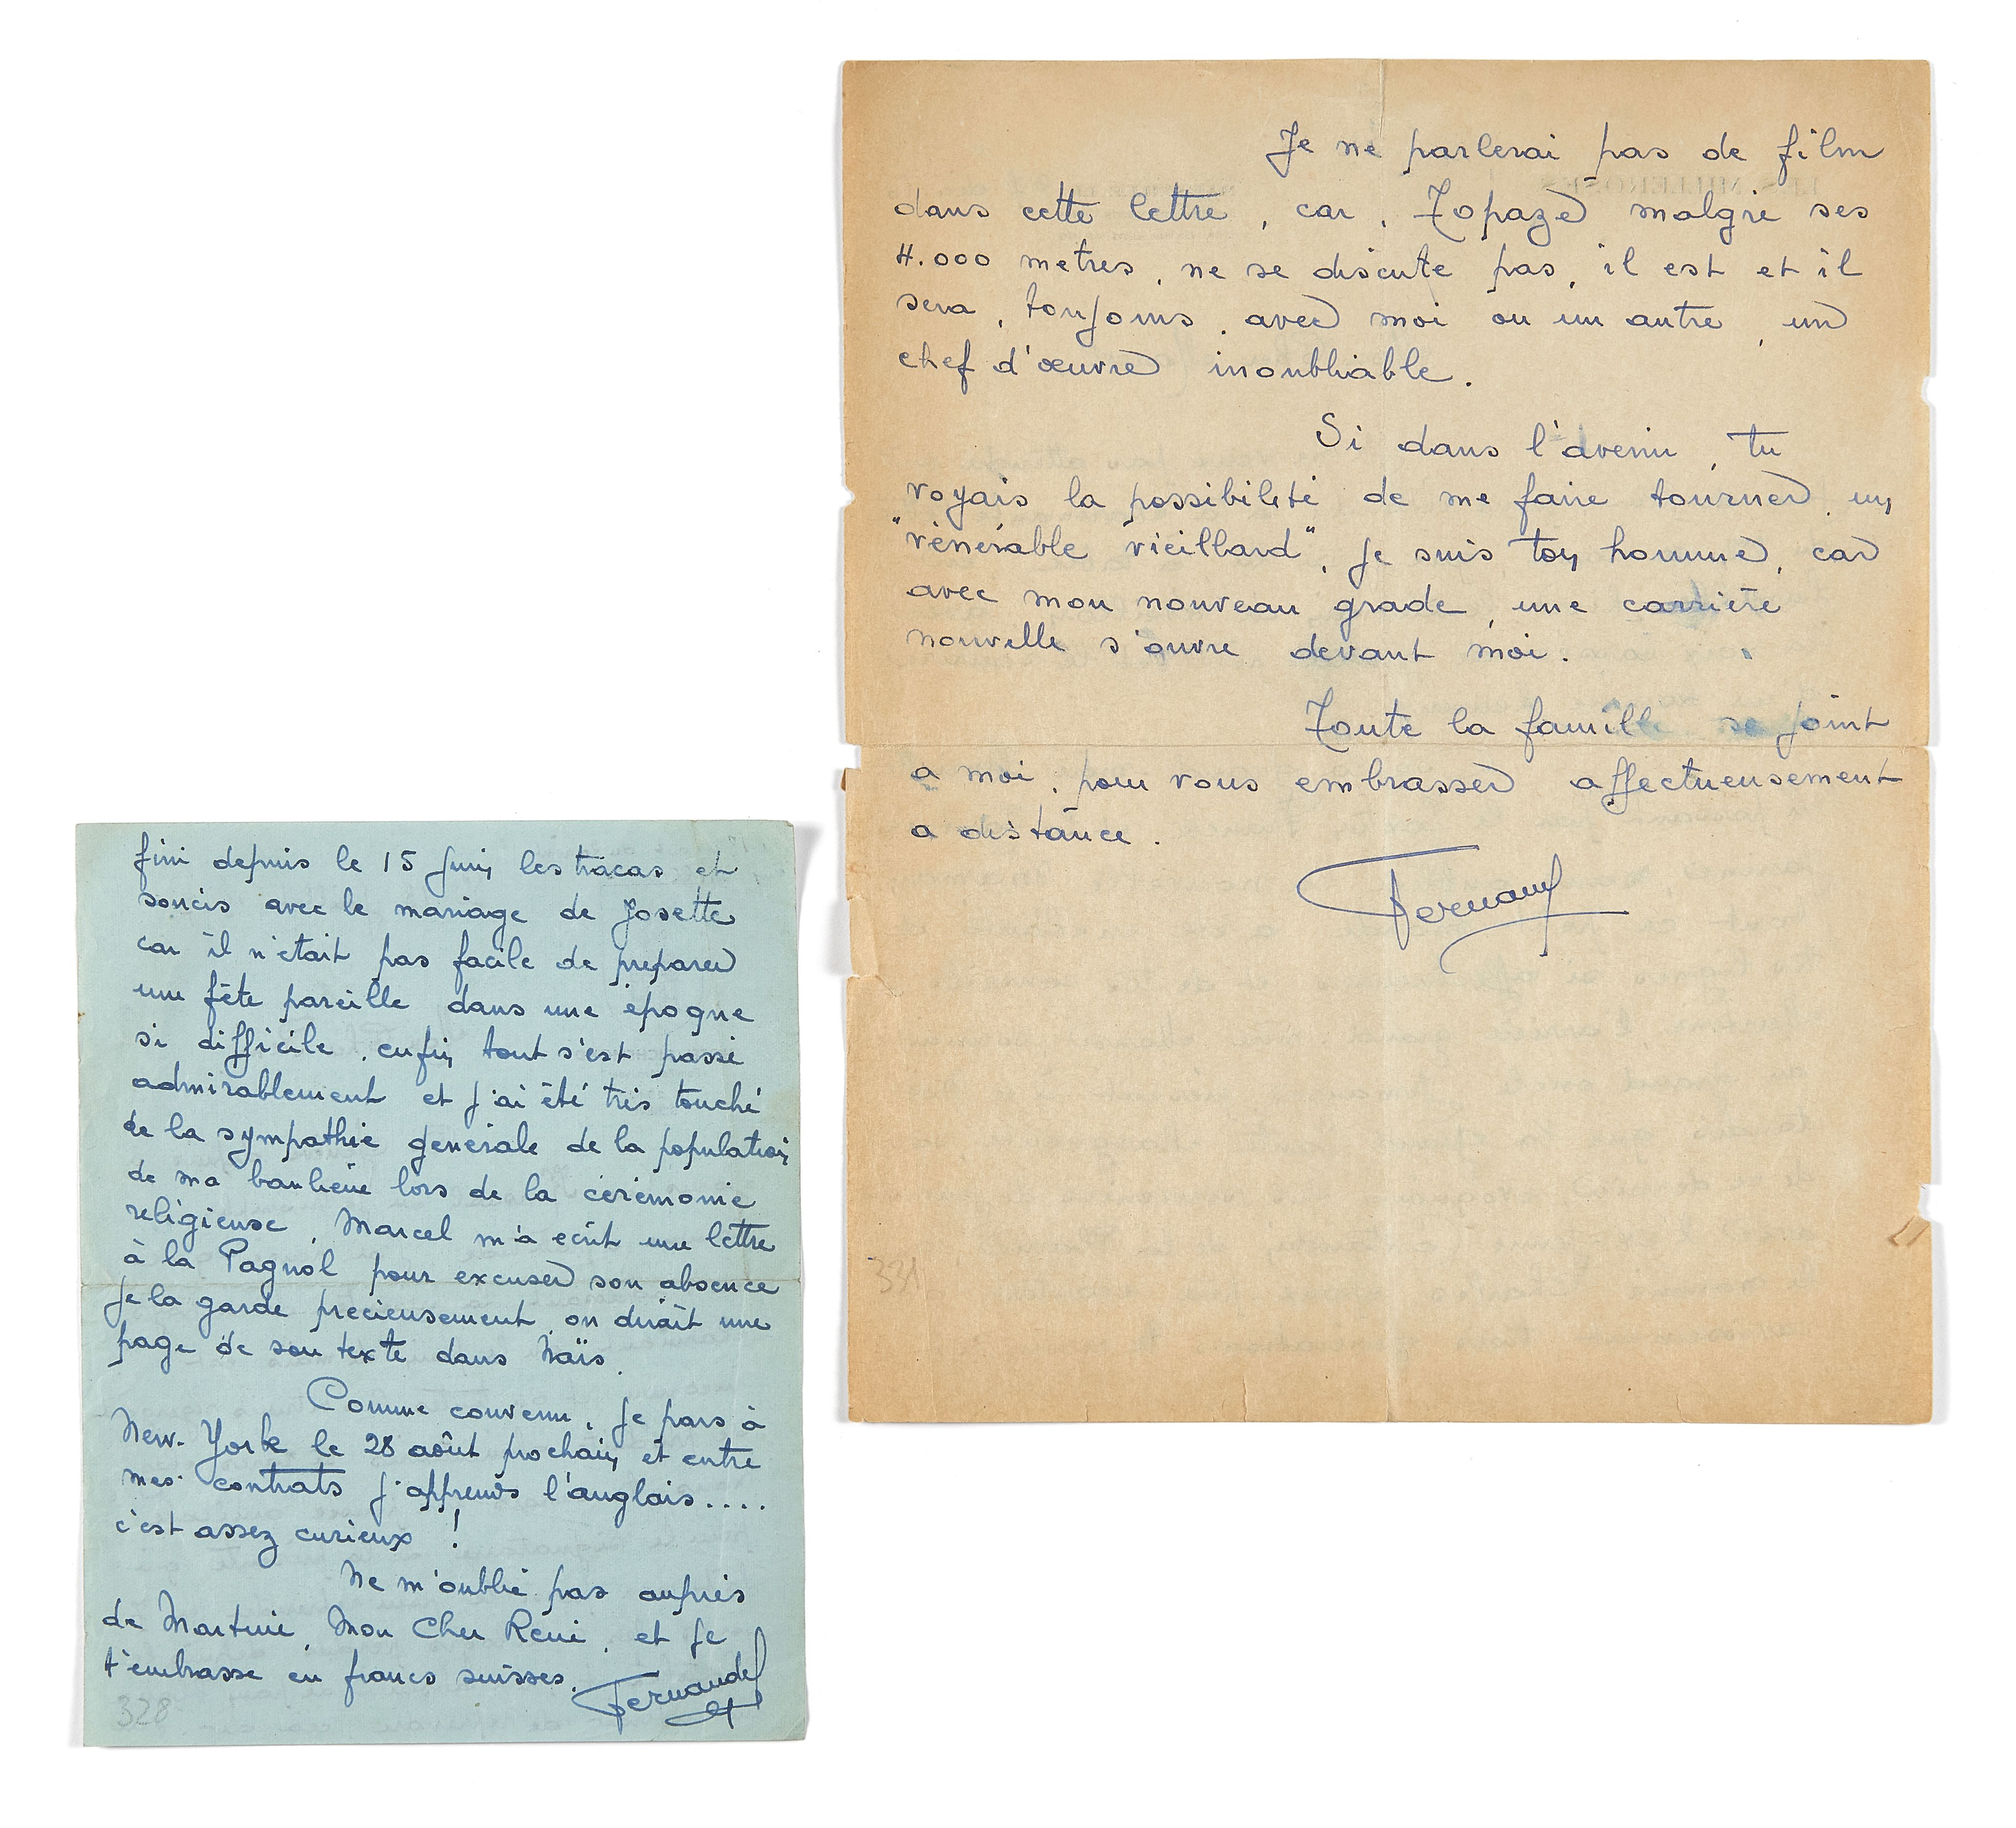 fini depuis le 15 Juin les tracas et
soucis avec le mariage de Josette
car il n'était pas facile de préparer
une fête pareille dans une époque
si difficile, enfin tout s'est passé
admirablement et j'ai été très touché
de la sympathie générale de la population
de ma banlieue lors de la cérémonie
religieuse, Marcel m'a ecrit une lettre
à la Pagnol pour excuser son absence
Je la garde precieusement, on dirait une
page de son texte dans Naïs.
Comme convenu, je pars à
New-York le 28 août prochain et entre
mes contrats j'apprends l'anglais....
c'est assez curieux !
Ne m'oublie pas auprès
de Martine, Mon Cher René, et je
t'embrasse en francs suisses.
Fernandel
328
Je ne parlerai pas de film
dans cette lettre, car, Topaze malgré ses
4.000 metres, ne se discute pas, il est et il
sera, toujours, avec moi ou un autre, un
chef d'œuvre inoubliable.
Si dans l'avenir, tu
voyais la possibilité de me faire tourner, un
"vénérable vieillard", je suis ton homme, car
avec mon nouveau grade, une carrière
nouvelle s'ouvre devant moi.
Toute la famille se joint
a moi, pour vous embrasser affectueusement
a distance.
Fernandel
331